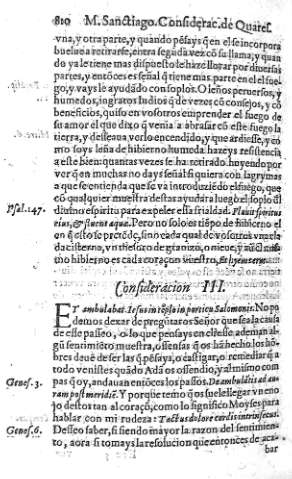 810 M. Sanctiago. Considerac. de Quares.
vna, y otra parte, y quando pẽsays quẽ en el se incorpora
buelue a retirarse, entra segũda vez cõ su llama, y quan
do ya le tiene mas dispuesto le haze llorar por diuersas
partes, y entonces es señal q̃ tiene mas parte en el el fue
go, y vays le ayudãdo con soplos. O leños peruersos, y
humedos, ingratos Iudios q̃ de vezes cõ consejos, y cõ
beneficios, quiso en vosotros emprender el fuego de
su amor el que dixo q̃ venia a abrasar cõ este fuego la
tierra, y desseaua verlo encendido, y que ardiesse, y cõ
mo soys leña de hibierno humeda hazeys resistencia
a este bien: quantas vezes se ha retirado, huyendo por
ver q̃ en muchos no days señal si quiera con lagrymas
a que se entienda que se va introduziẽdo el fuego, que
cõ qualquier muestra destas ayudara luego el soplo del
Psal. 147. diuino espiritu para expeler essa frialdad. Flauit spiritus
eius, & fluent aquæ. Pero no solo es tiẽpo de hibierno el
en q̃ esto se pretẽde, sino cada qual de vosotros vna ela
da cisterna, vn thesoro de granizo, o nieue, y aũ el mis-
mo hibierno es cada coraçon vuestro, & hyems erat.
Consideracion III.
ET ambulabat Iesus in tẽplo in porticu Salomonis. No po
demos dexar de pregũtaros Señor que sea la causa
de esse passeo, o lo que pensays en el: esse ademan al-
gũ sentimiẽto muestra, ofensas q̃ os hã hecho los hõ-
bres deuẽ de ser las q̃ pẽsays, o castigar, o remediar q̃ a
todo venistes quãdo Adã os offendio, y al mismo com
Genes. 3. pas q̃ oy, andauan entõces los passos. De ambulãtis ad au
ram post meridiẽ. Y porque temo q̃ os suele llegar vn eno
jo destos tan al coraçõ, como lo significò Moyses para
hablar con mi rudeza: Tactus dolore cordis intrinsecus.
Genes. 6. Desseo saber, si siendo mayor la razon del sentimien-
to, aora si tomays la resolucion que entonces de aca-
bar